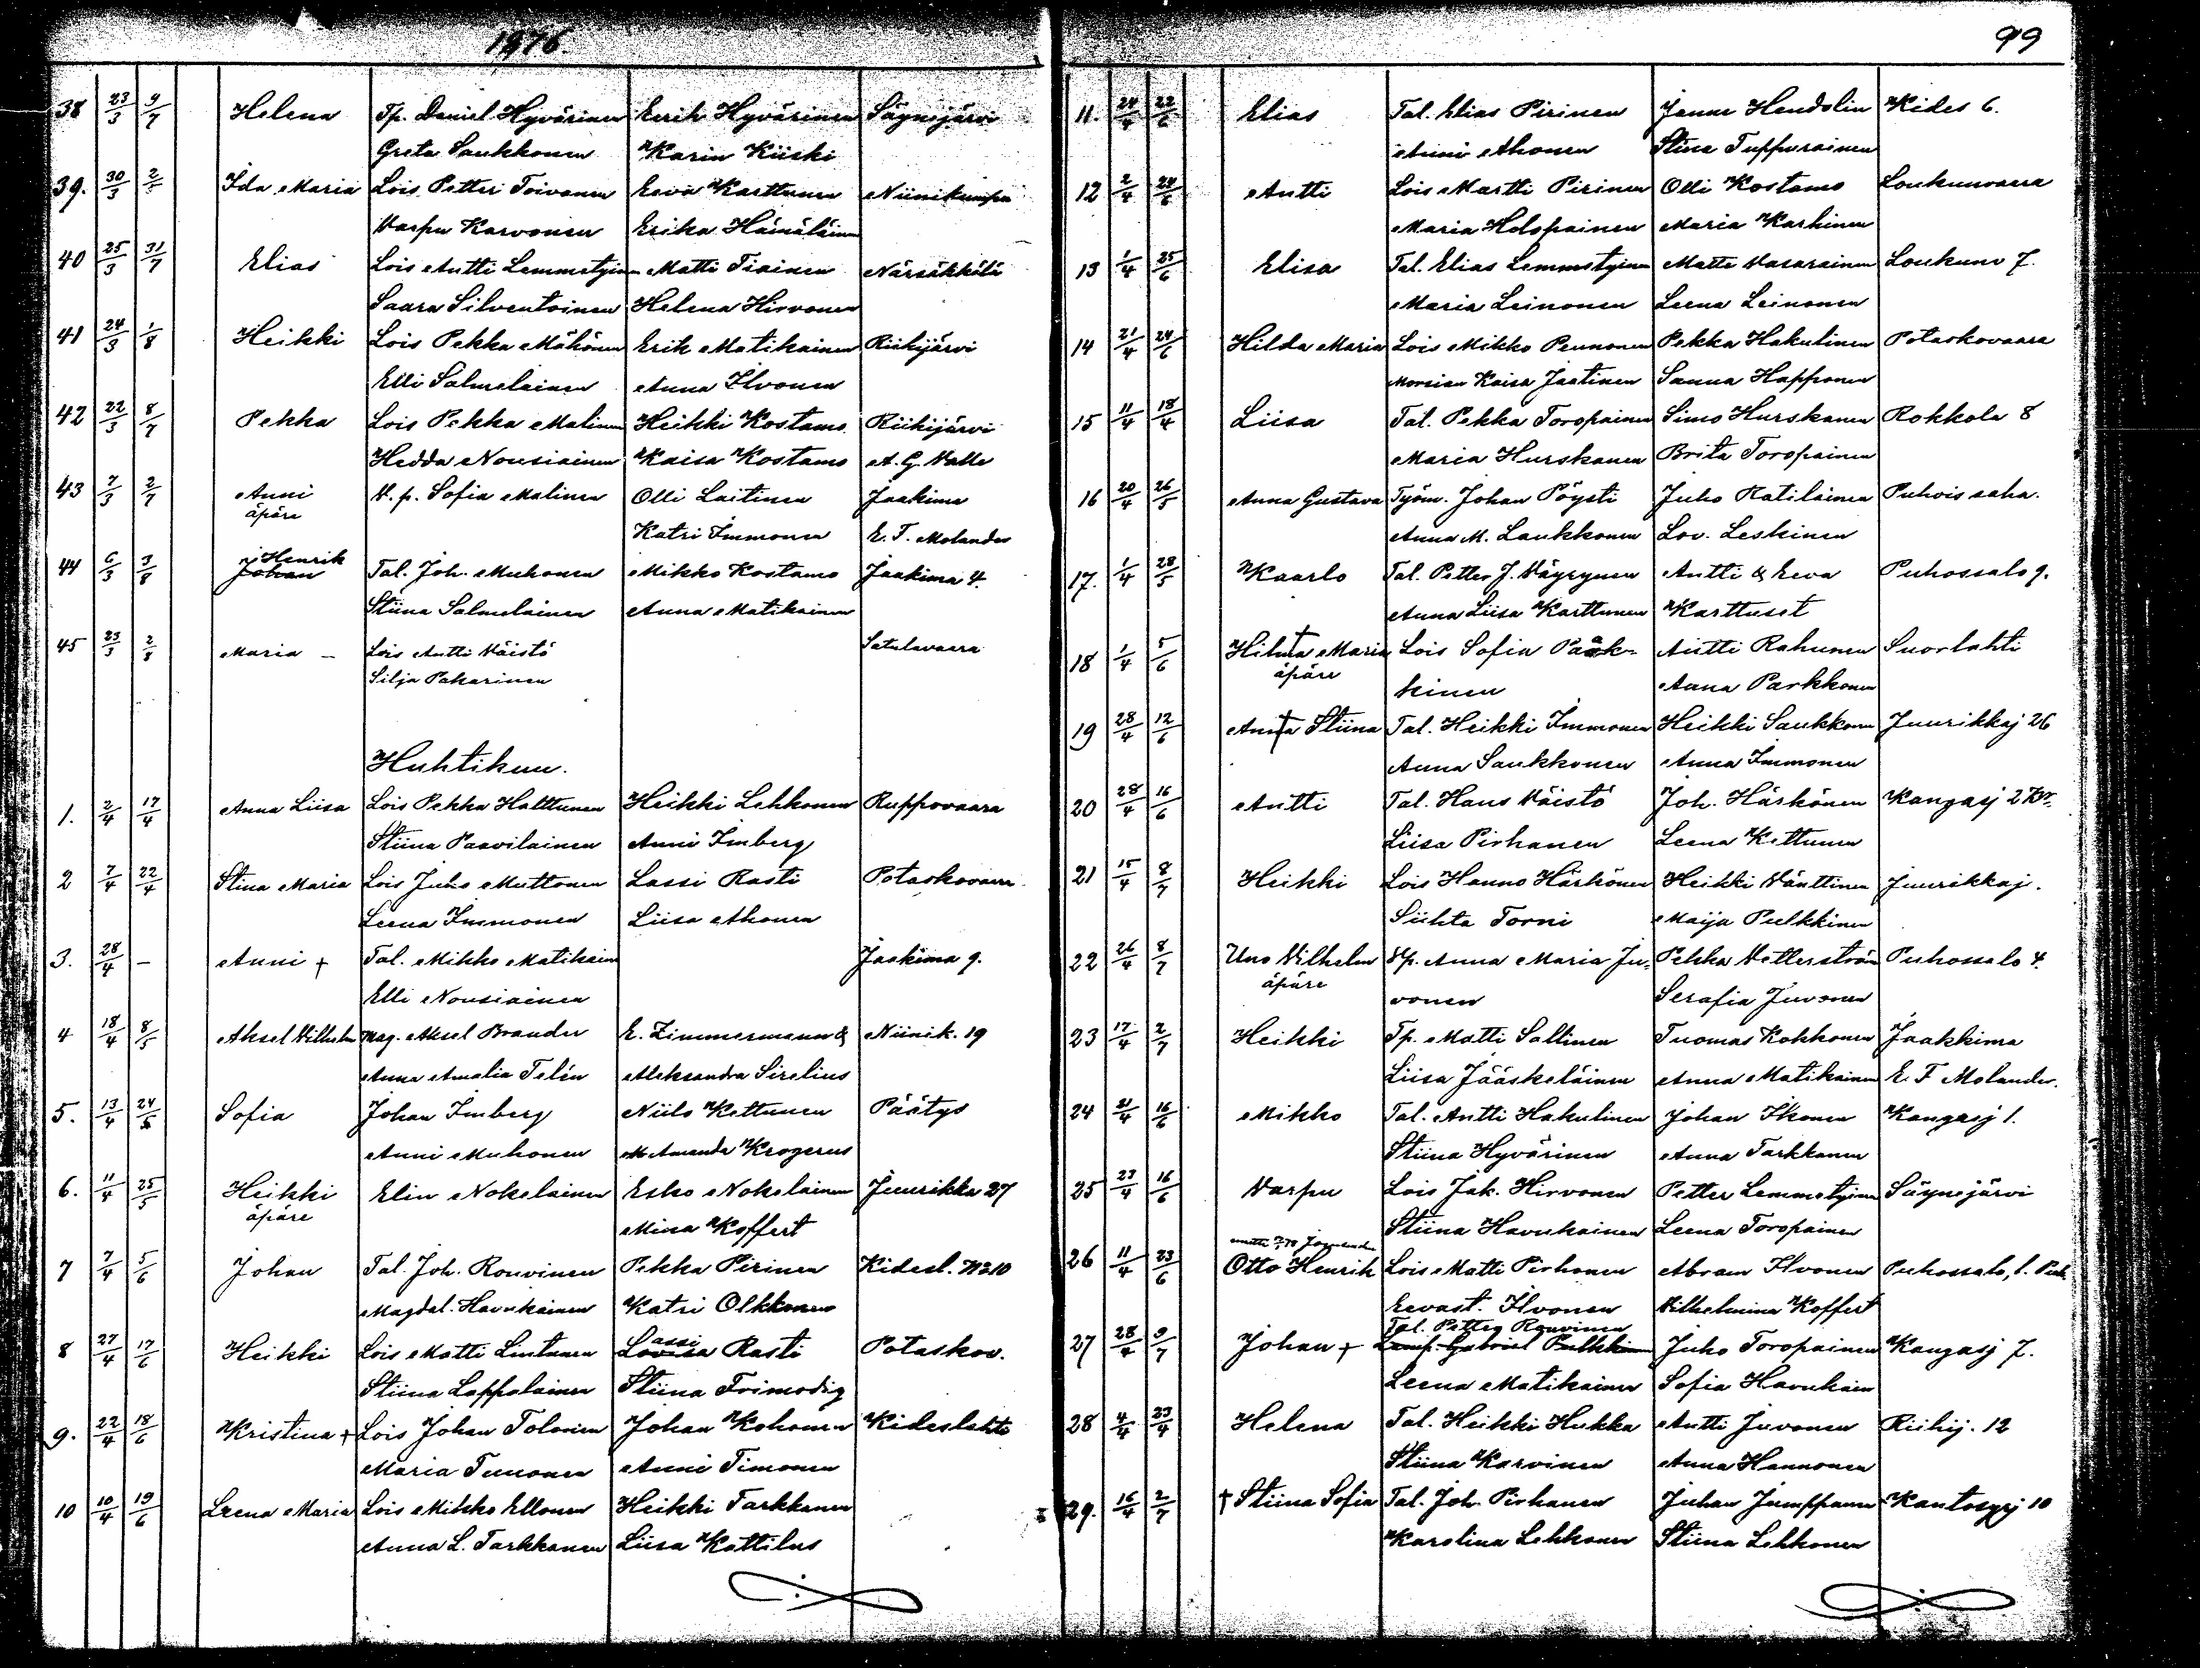 1876.
38 23/3 9/7 Helena Tp. Daniel Hyvärinen Eerik Hyvärinen Säynejärvi
Greta Saukkonen Karin Kiiski
39. 30/3 2/5 Ida Maria Lois Petter Toivonen Eeva Karttunen Niinikumpu
Varpu Karvonen Erika Hämäläinen
40 25/3 31/7 Elias Lois Antti Lemmetyinen Matti Tiainen Närsäkkälä
Saara Silventoinen Helena Hirvonen
41 24/3 1/8 Heikki Lois Pekka Mähönen Erik Matikainen Riihijärvi
Elli Salmelainen Anna Ilvonen
42 22/3 8/7 Pekka Lois Pekka Malinen Heikki Kostamo Riihijärvi
Hedda Nousiainen Kaisa Kostamo A. G. Valle
43 7/3 2/7 Anni V. p. Sofia Malinen Olli Laitinen Jaakima
äpäre Katri Immonen E. F. Molander
44 6/3 3/8 j Henrik
Johan Tal. Joh. Muhonen Mikko Kostamo Jaakima 4.
Stiina Salmelainen Anna Matikainen
45 23/3 2/8 Maria – Lois Antti Väistö Satulavaara
Silja Pakarinen
Huhtikuu.
1. 2/4 17/4 Anna Liisa Lois Pekka Halttunen Heikki Lehkonen Ruppovaara
Stiina Paavilainen Anni Imberg
2 7/4 22/4 Stina Maria Lois Juho Muttonen Lassi Rasti Potaskovaara
Leena Immonen Liisa Ahonen
3. 28/4 – Anni + Tal. Mikko Matikain Jaakima 9.
Elli Nousiainen
4 18/4 8/5 Aksel Vilhelm Mag. Aksel Brander E. Zimmermann & Niinik. 19
Anna Amalia Telén Aleksandra Sirelius
5. 13/4 24/5 Sofia Johan Imberg Niilo Kettunen Päätys
Anni Muhonen M Amanda Krogerus
6. 11/4 25/5 Heikki Elin Nokelainen Esko Nokelainen Juurikka 27
äpäre Mina Koffert
7 7/4 5/6 Johan Tal. Joh. Rouvinen Pekka Pirinen Kidesl. No 10
Magdal. Havukainen Katri Olkkonen
8 27/4 17/6 Heikki Lois Matti Lintunen Lassi Rasti Potaskov.
Stiina Lappalainen Stiina Frimodig
9. 22/4 18/6 Kristina + Lois Johan Tolonen Johan Kohonen Kideslahti
Maria Timonen Anni Timonen
10 10/4 19/6 Leena Maria Lois Mikko Ellonen Heikki Tarkkanen
Anna L. Tarkkanen Liisa Kattilus
99
11. 24/4 22/6 Elias Tal. Elias Pirinen Janne Hendolin Kides 6.
Anni Ahonen Stina Tuppurainen
12 2/4 24/6 Antti Lois Martti Pirinen Olli Kostamo Loukunvaara
Maria Holopainen Maria Karhinen
13 1/4 25/6 Elisa Tal. Elias Lemmetyinen Matti Vasarainen Loukunv 7.
Maria Leinonen Leena Leinonen
14 21/4 24/6 Hilda Maria Lois Mikko Pennonen Pekka Hakulinen Potaskovaara
Morsian Kaisa Jaatinen Sanna Happonen
15 11/4 18/4 Liisa Tal. Pekka Toropainen Simo Hurskanen Rokkola 8
Maria Hurskanen Brita Toropainen
16 20/4 26/5 Anna Gustava Työm. Johan Pöysti Juho Ratiläinen Puhois saha.
Anna M. Laukkonen Lov. Leskinen
17. 1/4 28/5 Kaarlo Tal. Petter J. Väyrynen Antti & Eeva Puhossalo 9.
Anna Liisa Karttunen Karttuset
18 1/4 5/6 Maria Lois Sofia Antti Rahunen Suorlahti
äpäre kinen Anna Parkkonen
19 28/4 12/6 Anna Stiina Tal. Heikki Immonen Heikki Saukkonen Juurikkaj 26
Anna Saukkonen Anna Immonen
20 28/4 16/6 Antti Tal. Hans Väistö Joh. Härkönen Kangasj 2
Liisa Pirhonen Leena Kettunen
21 15/4 8/7 Heikki Lois Hanno Härkönen Heikki Vänttinen Juurikkaj.
Siihta Torni Maija Pulkkinen
22 26/4 8/7 Uno Vilhelm Anna Maria Ju- Pekka Vetterström Puhossalo 4.
äpäre vonen Serafia Juvonen
23 17/4 2/7 Heikki Tp. Matti Sallinen Tuomas Kokkonen Jaakkima
Liisa Jääskeläinen Anna Matikainen E. F Molander.
24 21/4 16/6 Mikko Tal. Antti Hakulinen Johan Ikonen Kangasj 1.
Stiina Hyvärinen Anna Tarkkanen
25 23/4 16/6 Varpu Lois Jak. Hirvonen Petter Lemmetyinen Säynejärvi
Stiina Havukainen Leena Toropainen
26 11/4 23/6 Otto Henrik Lois Matti Pirhonen Abram Ilvonen Puhossalo,
Eevast. Ilvonen Vilhelmina Koffert
Tal. Petter Rouvinen
27 28/4 9/7 Johan + Lamp. Gabriel Pulkkinen Juho Toropainen Kangasj 7.
Leena Matikainen Sofia Havukain
28 4/4 23/4 Helena Tal. Heikki Hukka Antti Juvonen Riihij. 12
Stiina Karvinen Anna Hannonen
29. 16/4 2/7 † Stiina Sofia Tal. Joh. Pirhonen Juhan Jumppanen Kantosyrj 10
Karolina Lehkonen Stiina Lehkonen